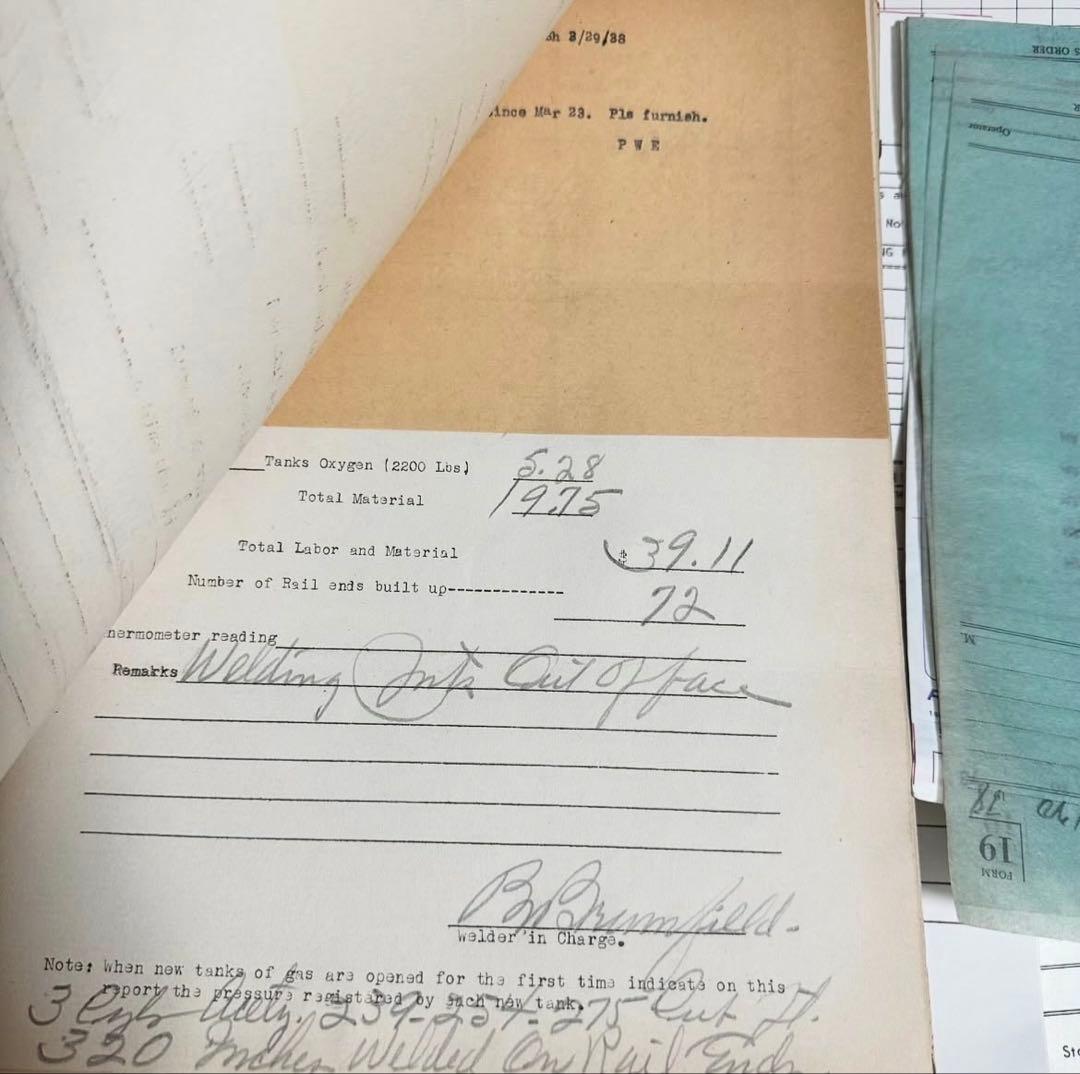 sh 3/29/38
since Mar 23. Pls furnish.
P W E
Tanks Oxygen (2200 Lbs) 5.28
Total Material 19.75
Total Labor and Material $39.11
Number of Rail ends built up------------- 72
hermometer reading
Remarks Welding Jnts Out Of face
B Brumfield.
Welder in Charge.
Note: When new tanks of gas are opened for the first time indicate on this
report the pressure registered by each new tank.
3 Cyls Acety. 239-254-275 Cub Ft.
320 Inches Welded On Rail Ends
S ORDER
Operator
M.
38
FORM
19